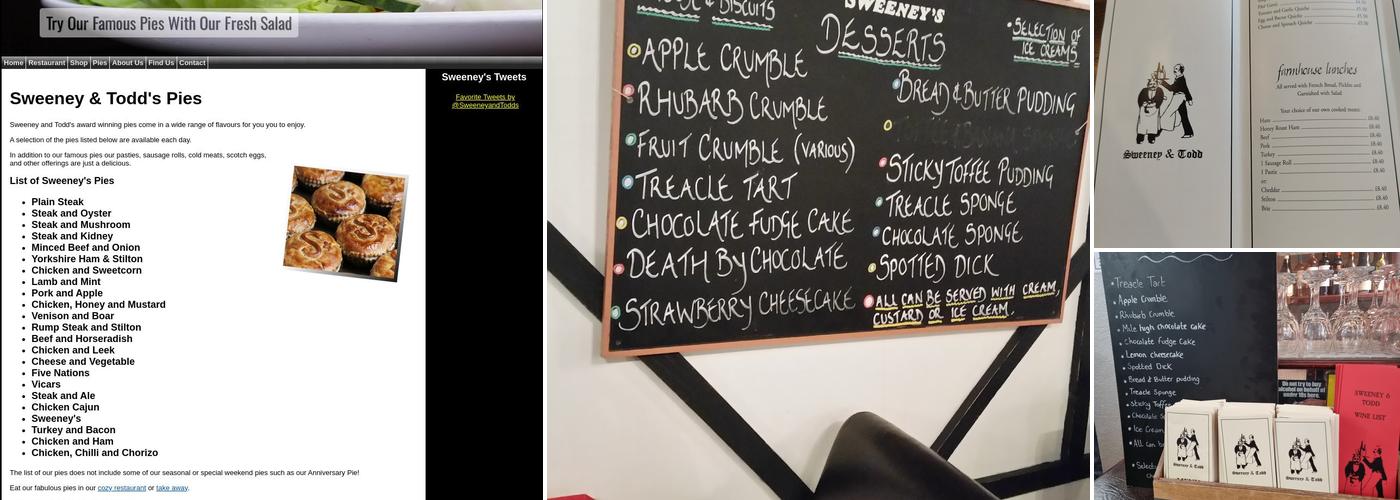 Try Our Famous Pies With Our Fresh Salad
Home Restaurant Shop Pies About Us Find Us Contact
Sweeney & Todd's Pies
Sweeney and Todd's award winning pies come in a wide range of flavours for you you to enjoy.
A selection of the pies listed below are available each day.
In addition to our famous pies our pasties, sausage rolls, cold meats, scotch eggs,
and other offerings are just a delicious.
List of Sweeney's Pies
Plain Steak
Steak and Oyster
Steak and Mushroom
Steak and Kidney
Minced Beef and Onion
Yorkshire Ham & Stilton
Chicken and Sweetcorn
Lamb and Mint
Pork and Apple
Chicken, Honey and Mustard
Venison and Boar
Rump Steak and Stilton
Beef and Horseradish
Chicken and Leek
Cheese and Vegetable
Five Nations
Vicars
Steak and Ale
Chicken Cajun
Sweeney's
Turkey and Bacon
Chicken and Ham
Chicken, Chilli and Chorizo
The list of our pies does not include some of our seasonal or special weekend pies such as our Anniversary Pie!
Eat our fabulous pies in our cozy restaurant or take away.
Sweeney's Tweets
Favorite Tweets by
@SweeneyandTodds
& BISCUITS
SWEENEY'S
DESSERTS
SELECTION OF
ICE CREAMS
APPLE CRUMBLE
RHUBARB CRUMBLE
FRUIT CRUMBLE (VARIOUS)
TREACLE TART
CHOCOLATE FUDGE CAKE
DEATH By CHOCOLATE
STRAWBERRY CHEESECAKE
BREAD & BUTTER PUDDING
STICKY TOFFEE PUDDING
TREACLE SPONGE
CHOCOLATE SPONGE
SPOTTED DICK
ALL CAN BE SERVED WITH CREAM,
CUSTARD OR ICE CREAM.
Sweeney & Todd
Tomato and Garlic Quiche
Egg and Bacon Quiche £5.50
Cheese and Spinach Quiche £5.50
farmhouse lunches
All served with French Bread, Pickles and
Garnished with Salad
Your choice of our own cooked meats:
Ham £8.40
Honey Roast Ham £8.40
Beef £8.40
Pork £8.40
Turkey £8.40
1 Sausage Roll £8.40
1 Pastie £8.40
or:
Cheddar £8.40
Stilton £8.40
Brie £8.40
Treacle Tart
Apple Crumble
Rhubarb Crumble
Mile high chocolate cake
Chocolate Fudge Cake
Lemon cheesecake
Spotted Dick
Bread & Butter pudding
Treacle Sponge
Sticky Toffee
Chocolate
Ice Cream
All can
Do not try to buy
alcohol on behalf of
under 18s here.
SWEENEY &
TODD
WINE LIST
Sweeney & Todd
Sweeney & Todd
Sweeney & Todd